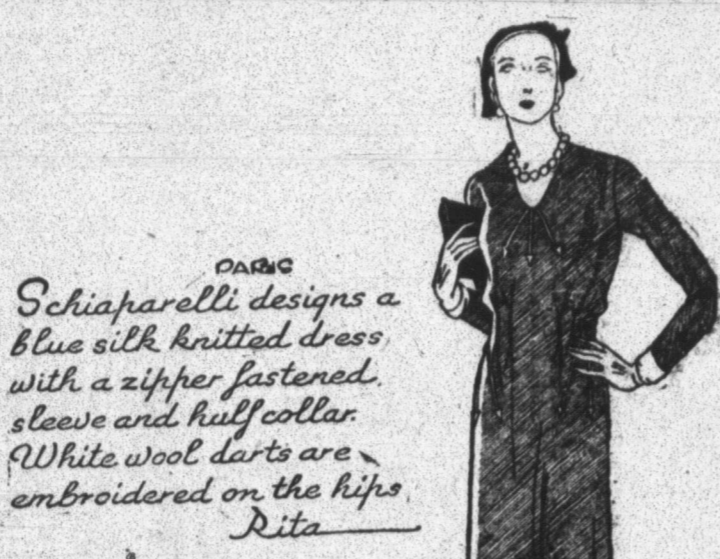 PARIS
Schiaparelli designs a
blue silk knitted dress,
with a zipper fastened
sleeve and half collar.
White wool darts are
embroidered on the hips
Rita